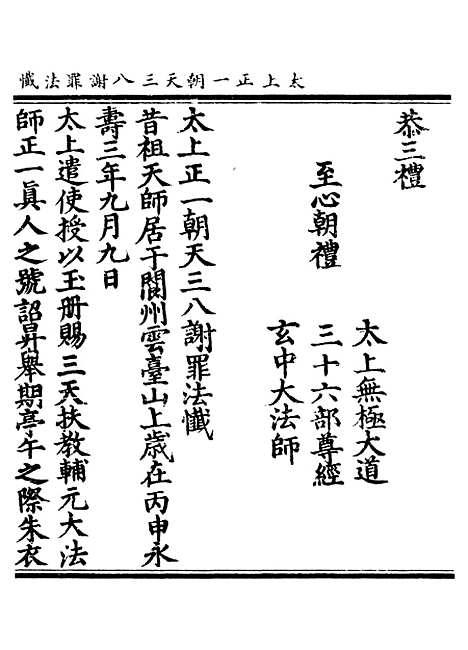 太上正一朝天三八謝罪法懺
恭三禮
至心朝禮
太上無極大道
三十六部尊經
玄中大法師
太上正一朝天三八謝罪法懺
昔祖天師居于閬州雲臺山上歲在丙申永
壽三年九月九日
太上遣使授以玉册賜三天扶教輔元大法
師正一眞人之號詔昇舉期亭午之際朱衣